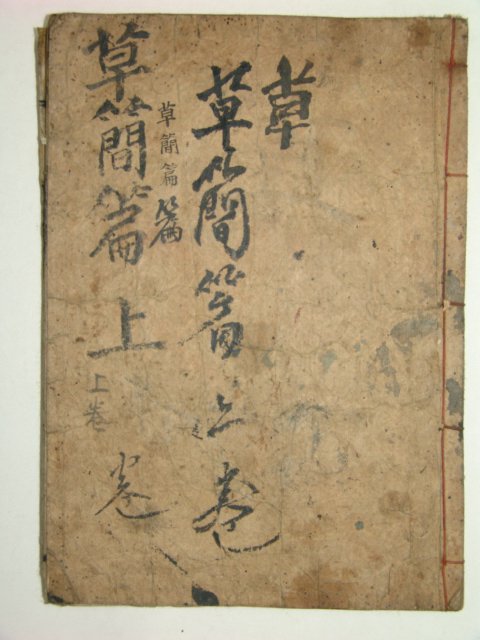 草
草簡篇上卷
草簡篇
篇
草簡篇上
卷
上卷